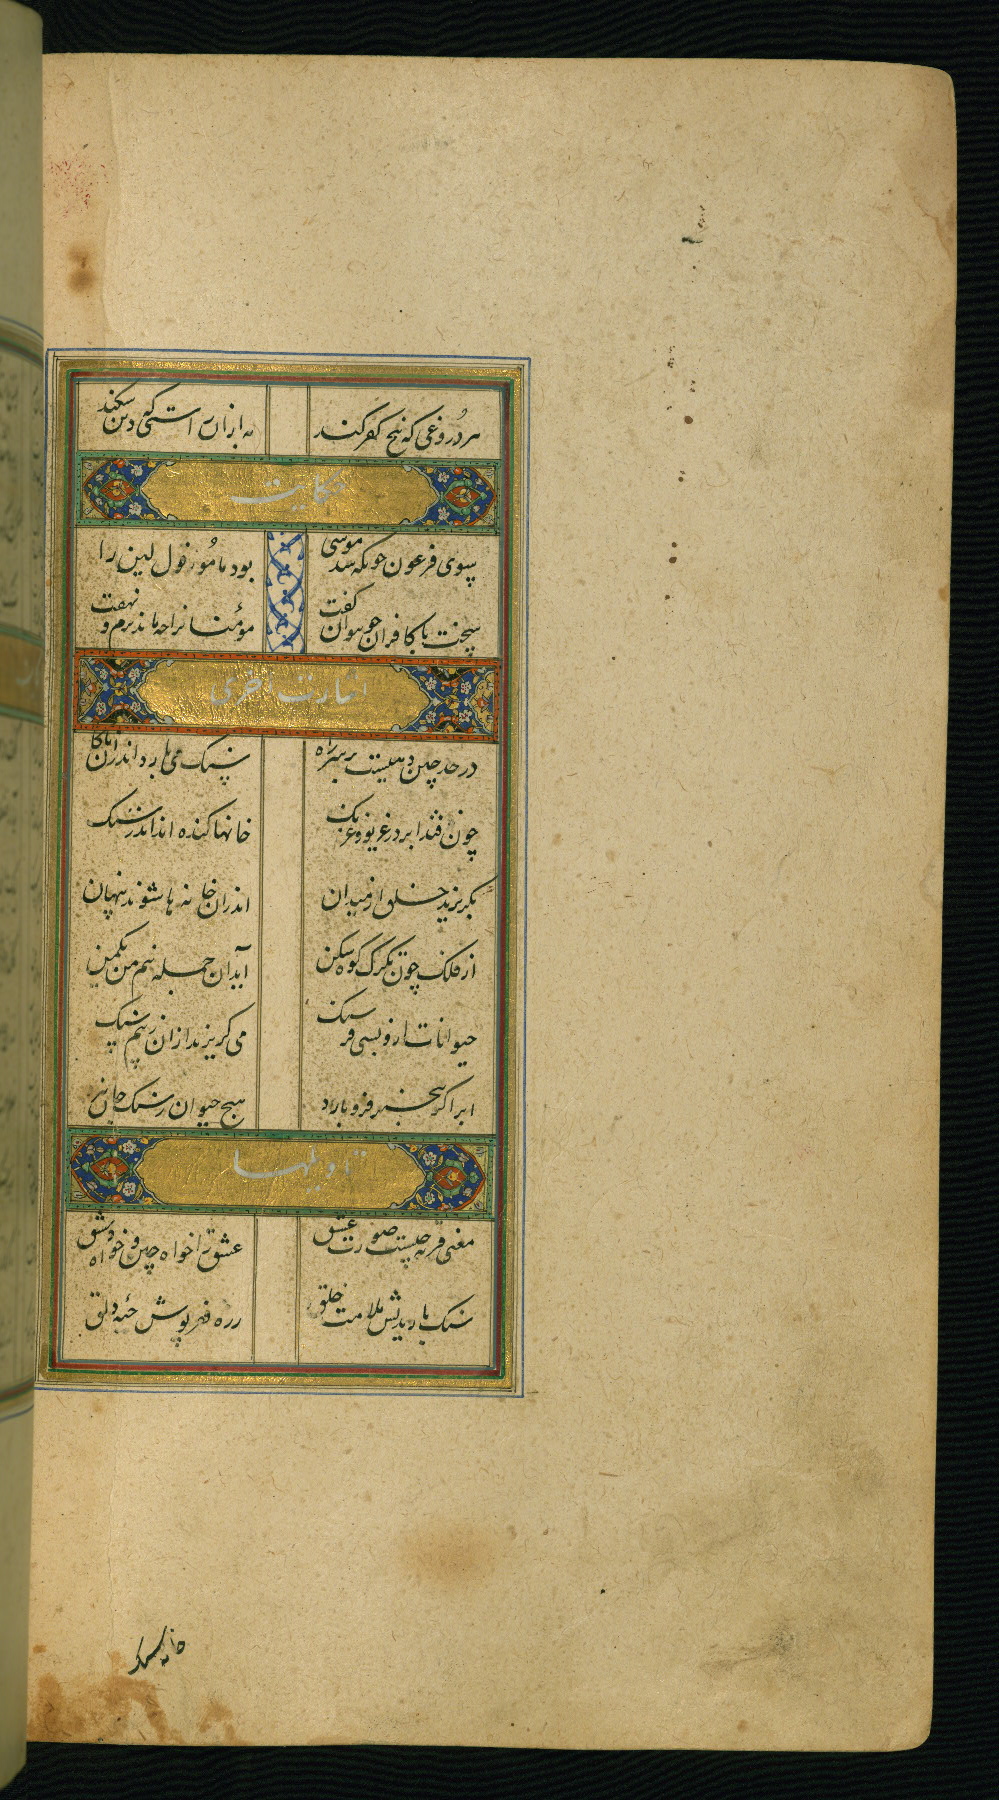 هر دروغی که بیخ کفر کند به ازان راستی که دین شکند
حکایت
سوی فرعون چونکه شد موسی بود مامور قول لین را
سخت با کافران چو نتوان گفت مؤمنانرا چه ماند نرم و نهفت
اشارت اخری
در حد چین دهیست بر سر راه سنک می بارد اندران ناکاه
چون فتد ابر در غریو و غرنک خانها کنده اند اندر سنک
بکریزند خلق از میدان اندران خانه ها شوند پنهان
از فلک چون تکرک کوه شکن آید آن جمله نیم من یکمن
حیوانات ازو بسی فرسنک می کریزند ازان ز بیم سنک
ابر اگر بیخبر فرو بارد هیچ حیوان ز سنک جان نبرد
تاویلها
معنی قریه چیست صورت عشق عشق را خواه چین و خواه دمشق
سنک بارندیش ملامت خلق زره فقرپوش جبه دلق
خانه سنک